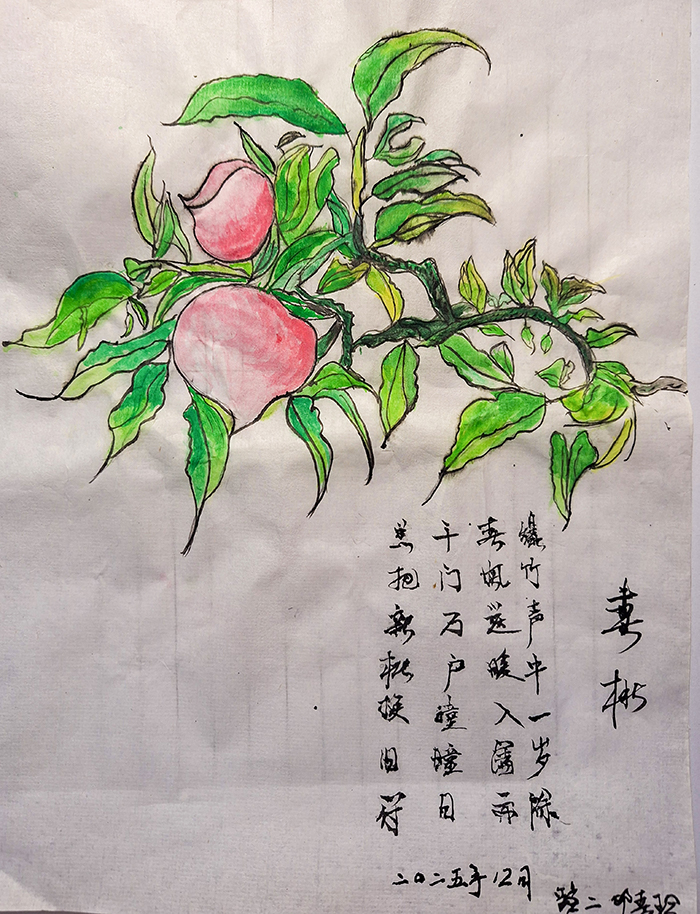 春桃
爆竹声中一岁除
春风送暖入屠苏
千门万户曈曈日
总把新桃换旧符
二〇二五年12月